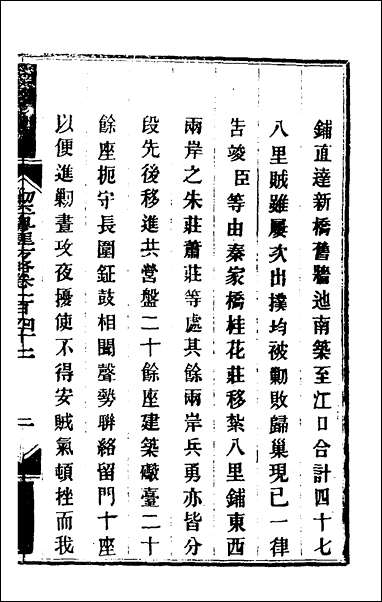 鋪直達新橋舊牆池南築至江口合計四十七
八里賊雖屢次出撲均被勦敗歸巢現已一律
告竣臣等由秦家橋桂花莊移紮八里鋪東西
兩岸之朱莊蕭莊等處其餘兩岸兵勇亦皆分
段先後移進共營盤二十餘座建築礮臺二十
餘座扼守長圍鉦鼓相聞聲勢聯絡留門十座
以便進勦晝攻夜擾使不得安賊氣頓挫而我
方略卷二百四十二
二